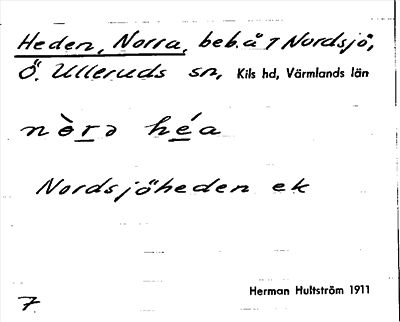 Heden, Norra, beb. å 7 Nordsjö,
Ö. Ulleruds sn, Kils hd, Värmlands län
nòrə héa
Nordsjöheden ek
Herman Hultström 1911
7